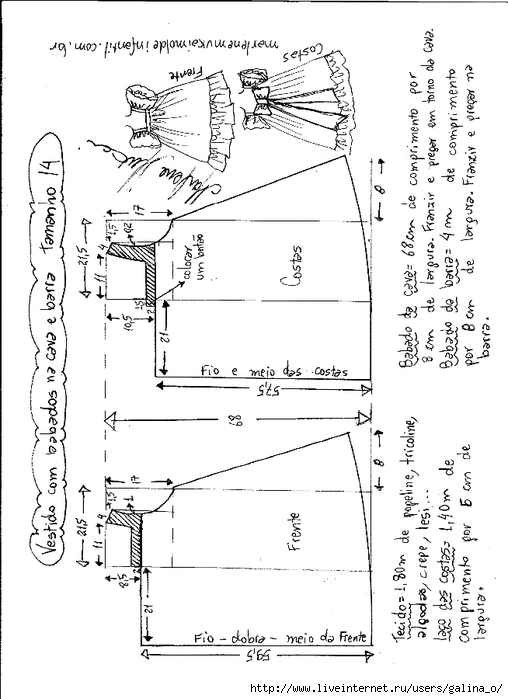 Vestido com babados na cava e barra tamanho 14
marlenemukaimoldeinfantil.com.br
Frente
Costas
Marlene Mukai
Babado da cava= 68 cm de comprimento por
8 cm de largura. Franzir e pregar em torno da cava.
Babado da barra= 4 m de comprimento
por 8 cm de largura. Franzir e pregar na
barra.
21,5
11
4
1,5
17
8
10,5
1,5
2
colocar
um botão
Costas
21
Fio e meio das costas
57,5
68
21,5
11
4
1,5
1
17
8
8,5
Frente
21
Fio - dobra - meio da Frente
59,5
Tecido= 1,80m de popeline, tricoline,
algodão, crepe, lesi...
laço das costas= 1,40m de
comprimento por 5 cm de
largura.
http://www.liveinternet.ru/users/galina_o/